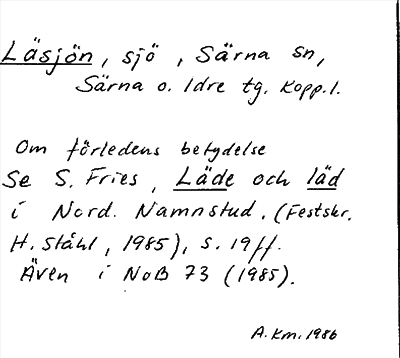 Läsjön, sjö, Särna sn,
Särna o. Idre tg. Kopp.l.
Om förledens betydelse
Se S. Fries, Läde och läd
i Nord. Namnstud. (Festskr.
H. Ståhl, 1985), s. 19ff.
Även i NoB 73 (1985).
A.Km. 1986